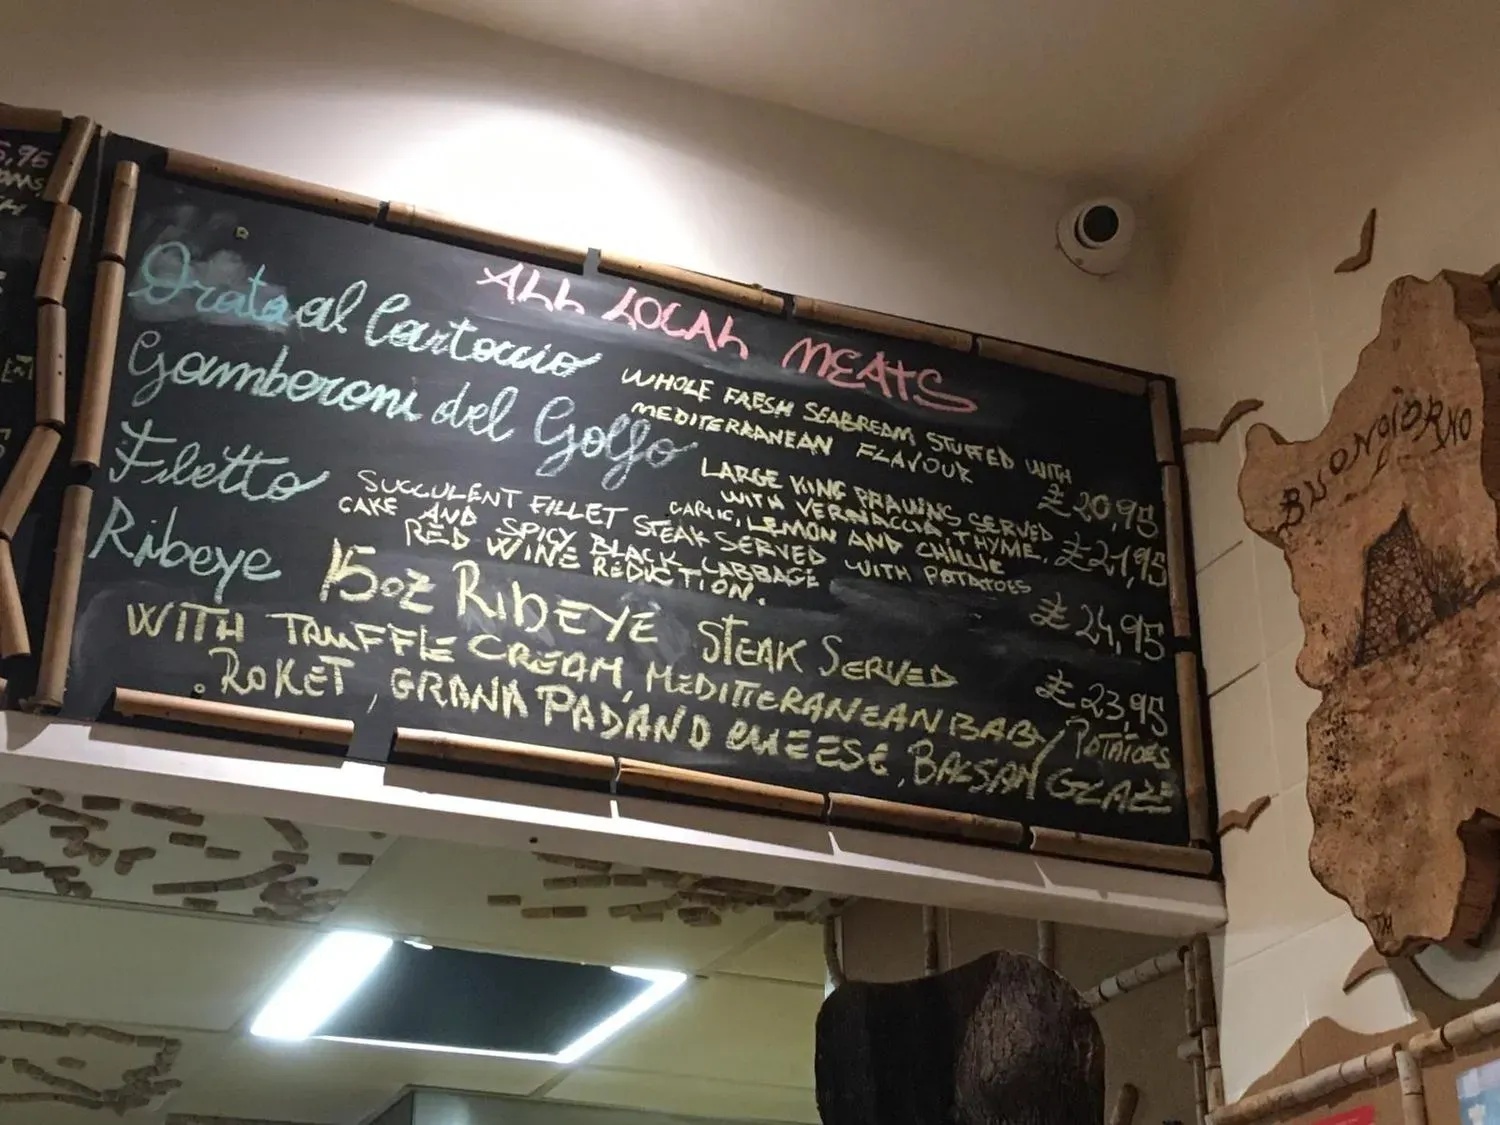 5,95
ALL LOCAL MEATS
Orata al Cartoccio
WHOLE FRESH SEABREAM STUFFED WITH
MEDITERRANEAN FLAVOUR
£20,95
Gamberoni del Golfo
LARGE KING PRAWNS SERVED
WITH VERNACCIA, THYME,
GARLIC, LEMON AND CHILLIE
£21,95
Filetto
SUCCULENT FILLET STEAK SERVED WITH POTATOES
CAKE AND SPICY BLACK CABBAGE
RED WINE REDUCTION.
£24,95
Ribeye
15oz RIBEYE STEAK SERVED
£23,95
WITH TRUFFLE CREAM, MEDITTERANEAN BABY POTATOES
. ROKET, GRANA PADAND CHEESE, BALSAMY GLAZE
BUONGIORNO